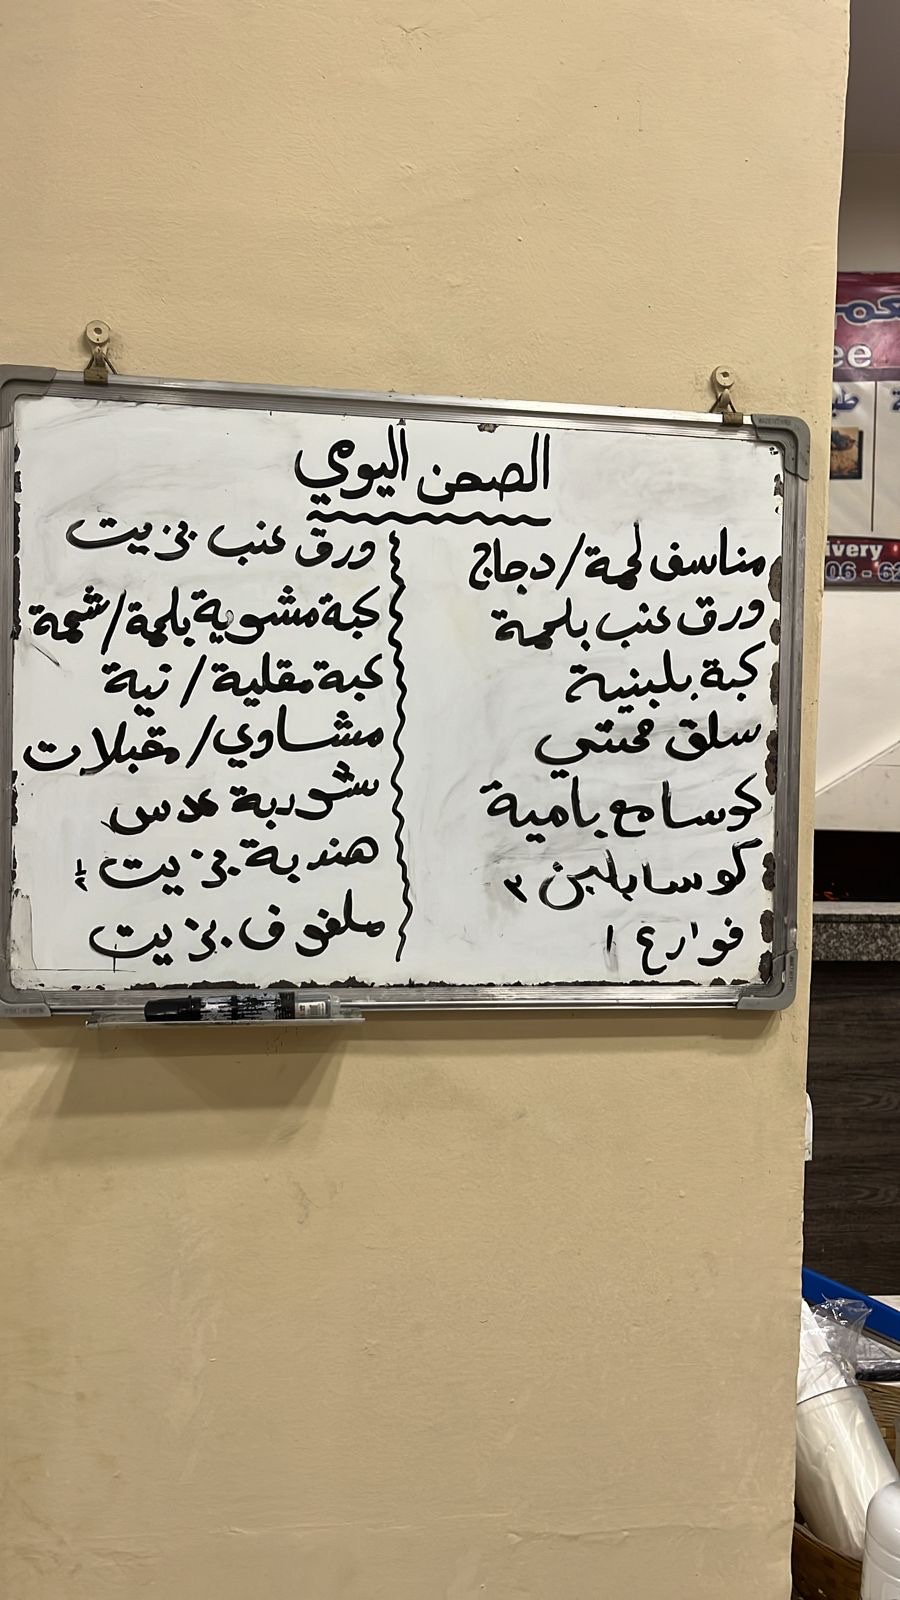 الصحن اليومي
مناسف لحمة/دجاج
ورق عنب بلحمة
كبة بلبنية
سلق محشي
كوسا مع بامية
كوسا بلبن ٣
فوارغ ١
ورق عنب بزيت
كبة مشوية بلحمة/شحمة
كبة مقلية/نية
مشاوي/مقبلات
شوربة عدس
هندبة بزيت ½
ملفوف بزيت
ee
livery
06 - 62